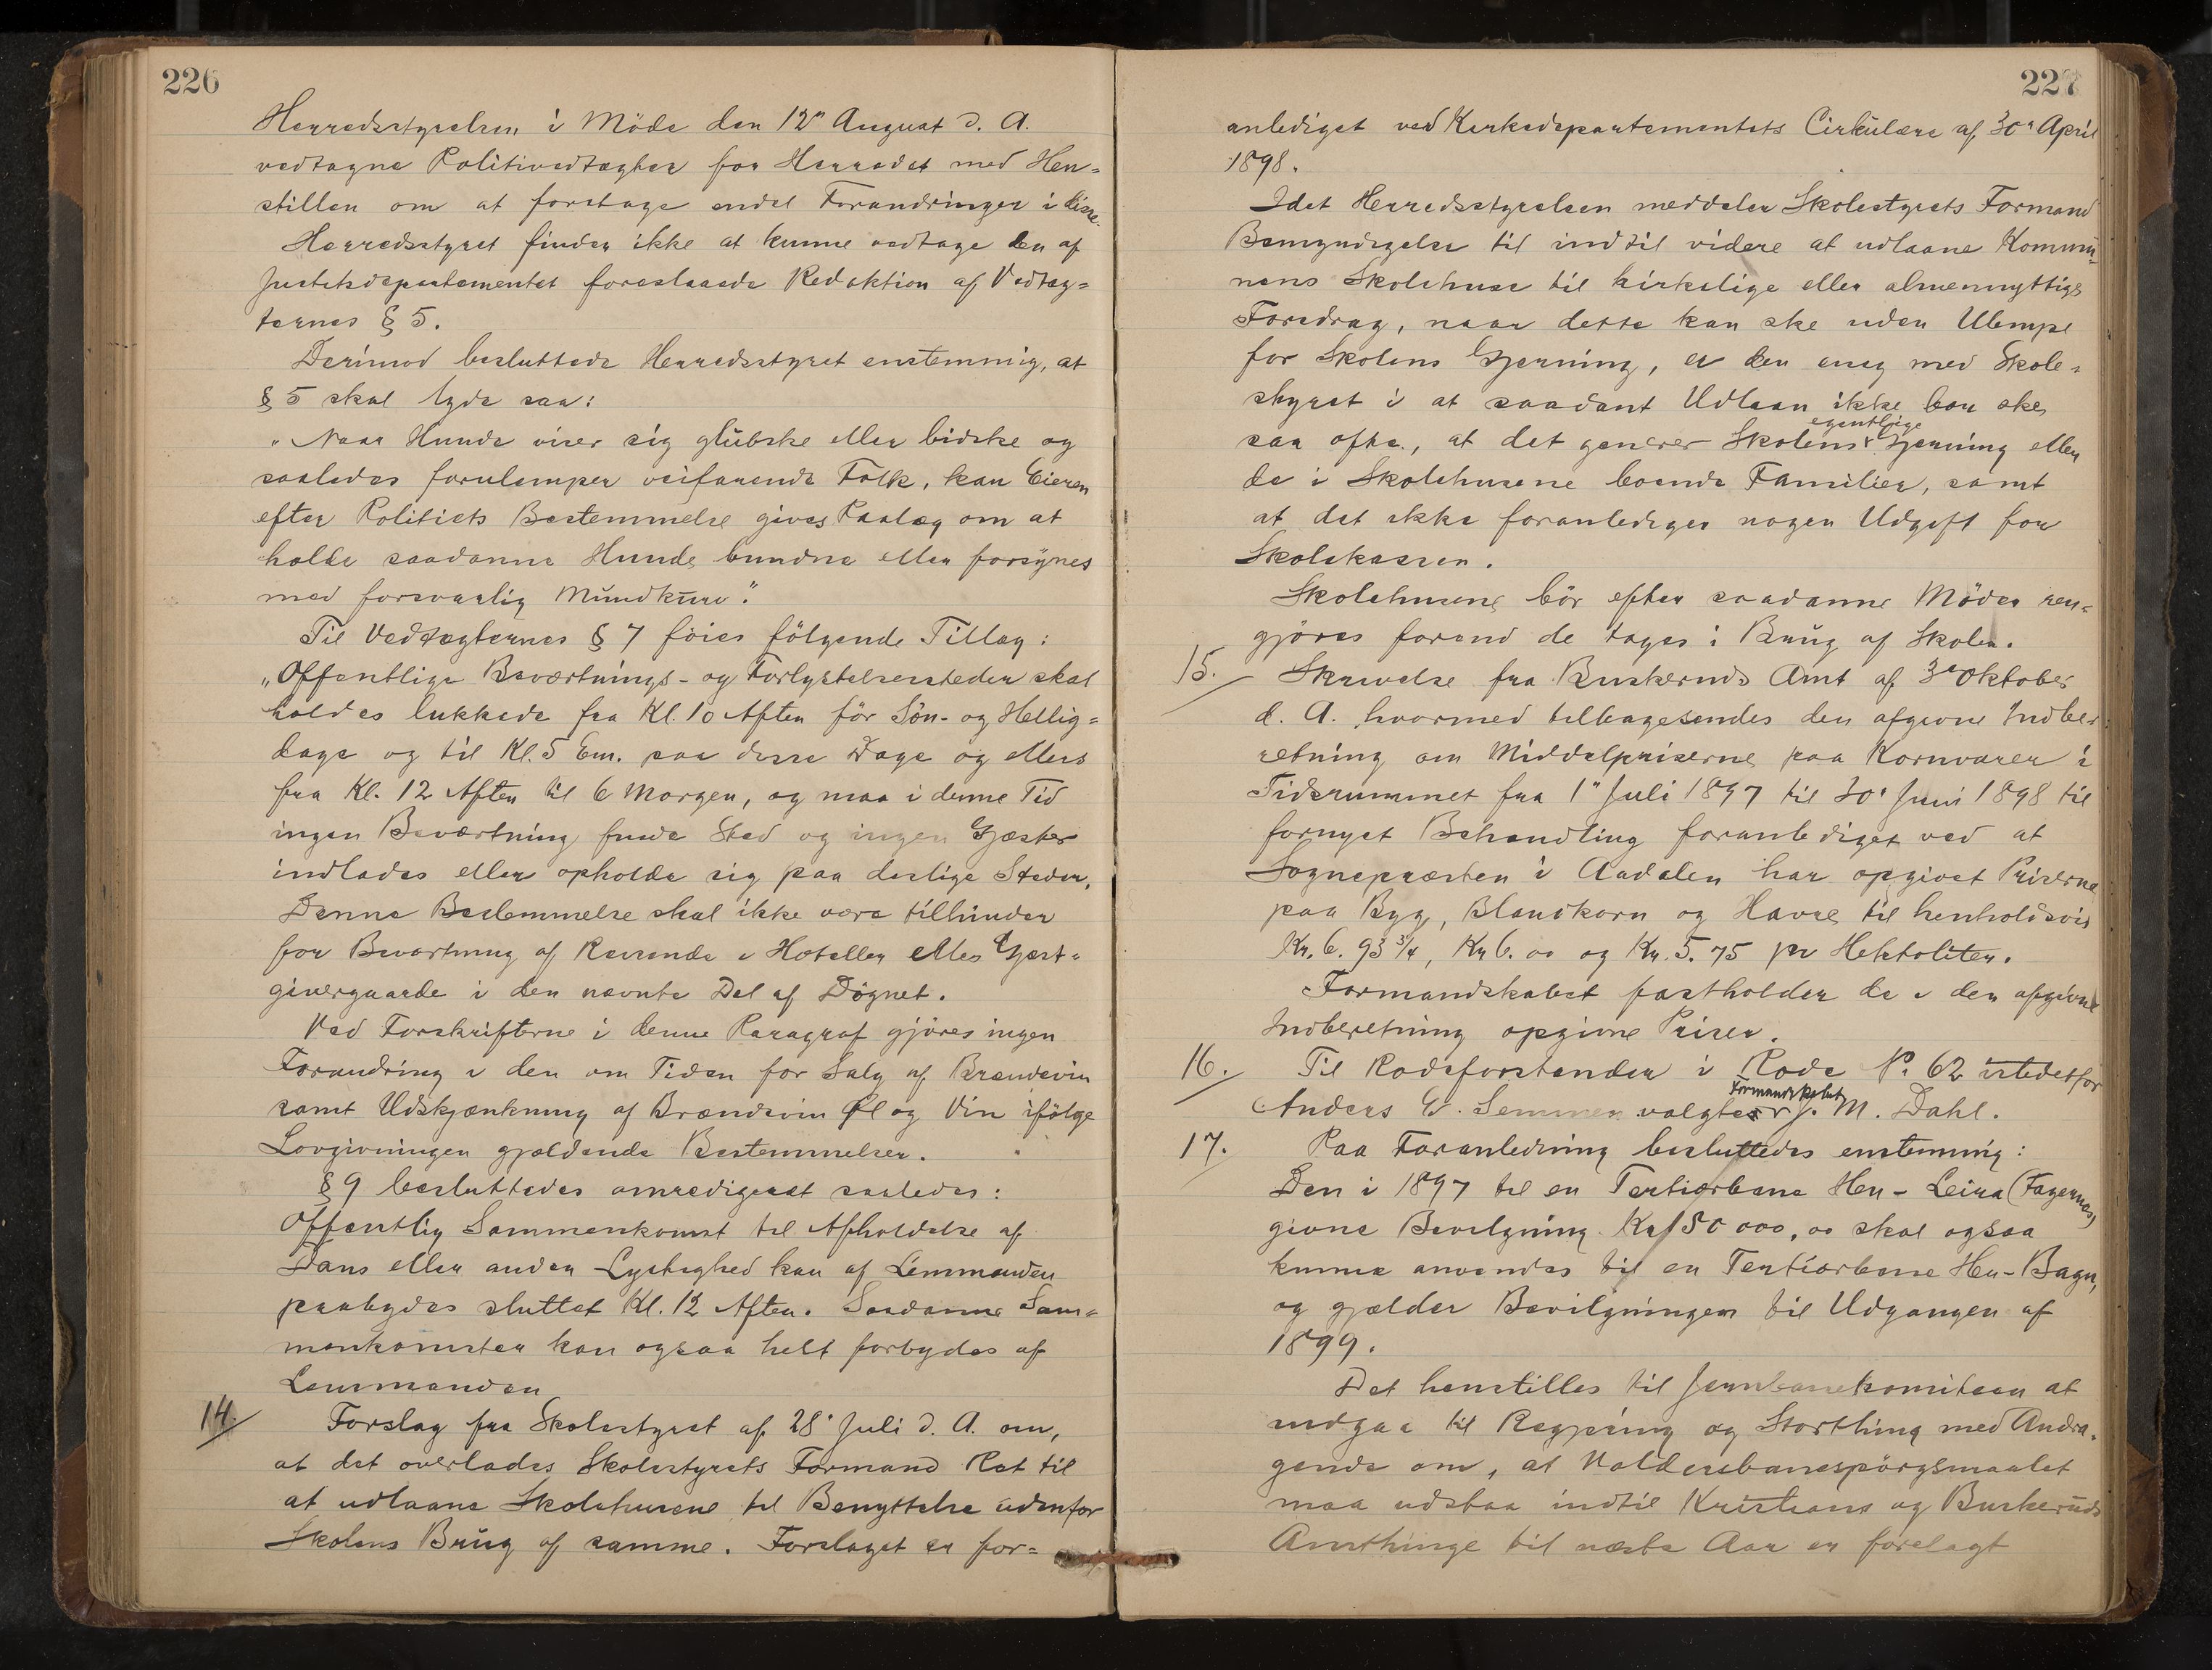 226
Herredsstyrelsen i Möde den 12te August d. A.
vedtagne Politivedtægter for Herredet med Hen=
stillen om at foretage endel Forandringer i disse.
Herredsstyret finder ikke at kunne vedtage den af
Justitsdepartementet foreslaaede Redaktion af Vedtæg=
ternes § 5.
Derimod besluttede Herredsstyret enstemmig, at
§ 5 skal lyde saa:
„Naar Hunde viser sig glubske eller bidske og
saaledes forulemper veifarende Folk, kan Eieren
efter Politiets Bestemmelse gives Paalæg om at
holde saadanne Hunde bundne eller forsynes
med forsvarlig Mundkurv."
Til Vedtægternes § 7 föies fölgende Tillæg:
„Offentlige Beværtnings- og Forlystelsessteder skal
holdes lukkede fra Kl. 10 Aften för Sön- og Hellig=
dage og til Kl. 5 Em. paa disse Dage og ellers
fra Kl. 12 Aften til 6 Morgen, og maa i denne Tid
ingen Beværtning finde Sted og ingen Gjæster
indlades eller opholde sig paa deslige Steder.
Denne Bestemmelse skal ikke være tilhinder
for Bevartning af Reisende i Hoteller elles Gjæst=
givergaarde i den nævnte Del af Dögnet.
Ved Forskrifterne i denne Paragraf gjöres ingen
Forandring i den om Tiden for Salg af Brændevin
samt Udskjænkning af Brændevin Øl og Vin ifölge
Lovgivningen gjældende Bestemmelser.
§ 9 besluttedes omredigeret saaledes:
Offentlig Sammenkomst til Afholdelse af
Dans eller anden Lystighed kan af Lensmanden
paabydes sluttet Kl. 12 Aften. Saadanne Sam=
menkomster kan ogsaa helt forbydes af
Lensmanden
14. Forslag fra Skolestyret af 28' Juli d. A. om,
at det overlades Skolestyrets Formand Ret til
at udlaane Skolehusene til Benyttelse udenfor
Skolens Brug af samme. Forslaget er for=
227
anlediget ved Kirkedepartementets Cirkulære af 30' April
1898.
Idet Herredsstyrelsen meddeler Skolestyrets Formand
Bemyndigelse til indtil videre at udlaane Kommu=
nens Skolehuse til kirkelige eller almennyttige
Foredrag, naar dette kan ske uden Ulempe
for Skolens Gjerning, er den enig med Skole=
styret i at saadant Udlaan ikke bör ske
egentlige
saa ofte, at det generer Skolens Gjerning eller
de i Skolehusene boende Familier, samt
at det ikke foranlediger nogen Udgift for
Skolekassen.
Skolehusene bör efter saadanne Möder ren=
gjöres forend de tages i Brug af Skolen.
15. Skrivelse fra Buskeruds Amt af 3' Oktober
d. A. hvormed tilbagesendes den afgivne Indbe=
retning om Middelpriserne paa Kornvarer i
Tidsrummet fra 1' Juli 1897 til 30' Juni 1898 til
fornyet Behandling foranlediget ved at
Sognepræsten i Aadalen har opgivet Priserne
paa Byg, Blandkorn og Havre til henholdsvis
Kr. 6. 93 3/4, Kr 6. 00 og Kr. 5. 75 pr Hektoliter.
Formandskabet fastholder de i den afgivne
Indberetning opgivne Priser.
16. Til Rodeforstander i Rode No. 62 istedetfor
formandskabet
Anders G. Semmen valgte J. M. Dahl.
17. Paa Foranledning besluttedes enstemmig:
Den i 1897 til en Tertiærbane Hen - Leira (Fagernes)
givne Bevilgning Kr 150 000,00 skal ogsaa
kunne anvendes til en Tertiærbane Hen - Bagn,
og gjælder Bevilgningen til Udgangen af
1899.
Det henstilles til Jernbanekomiteen at
indgaa til Regjering og Storthing med Andra=
gende om, at Valdersbanespörgsmaalet
maa udstaa indtil Kristians og Buskeruds
Amtthinge til næste Aar er forelagt